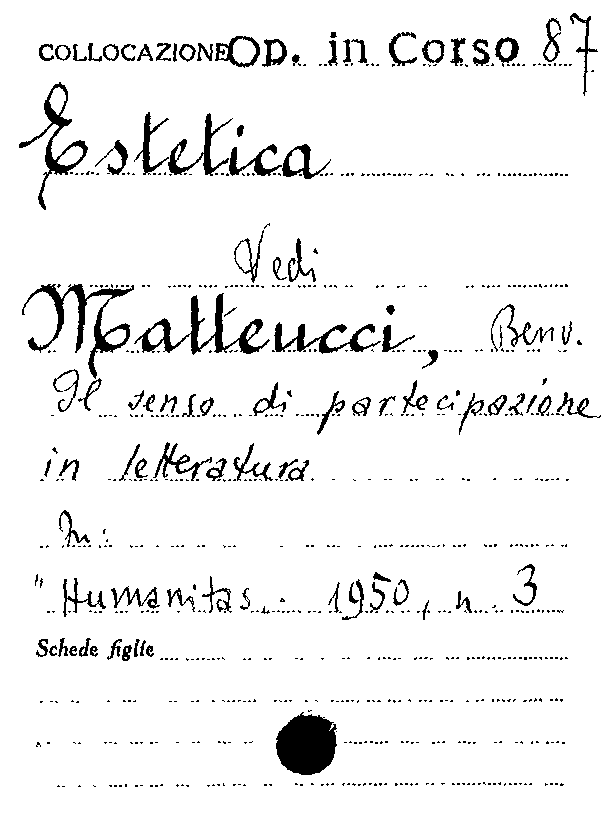 COLLOCAZIONE Op. in Corso 87
Estetica
Vedi
Matteucci, Benv.
Il senso di partecipazione
in letteratura
In:
"Humanitas.. 1950, n. 3
Schede figlie